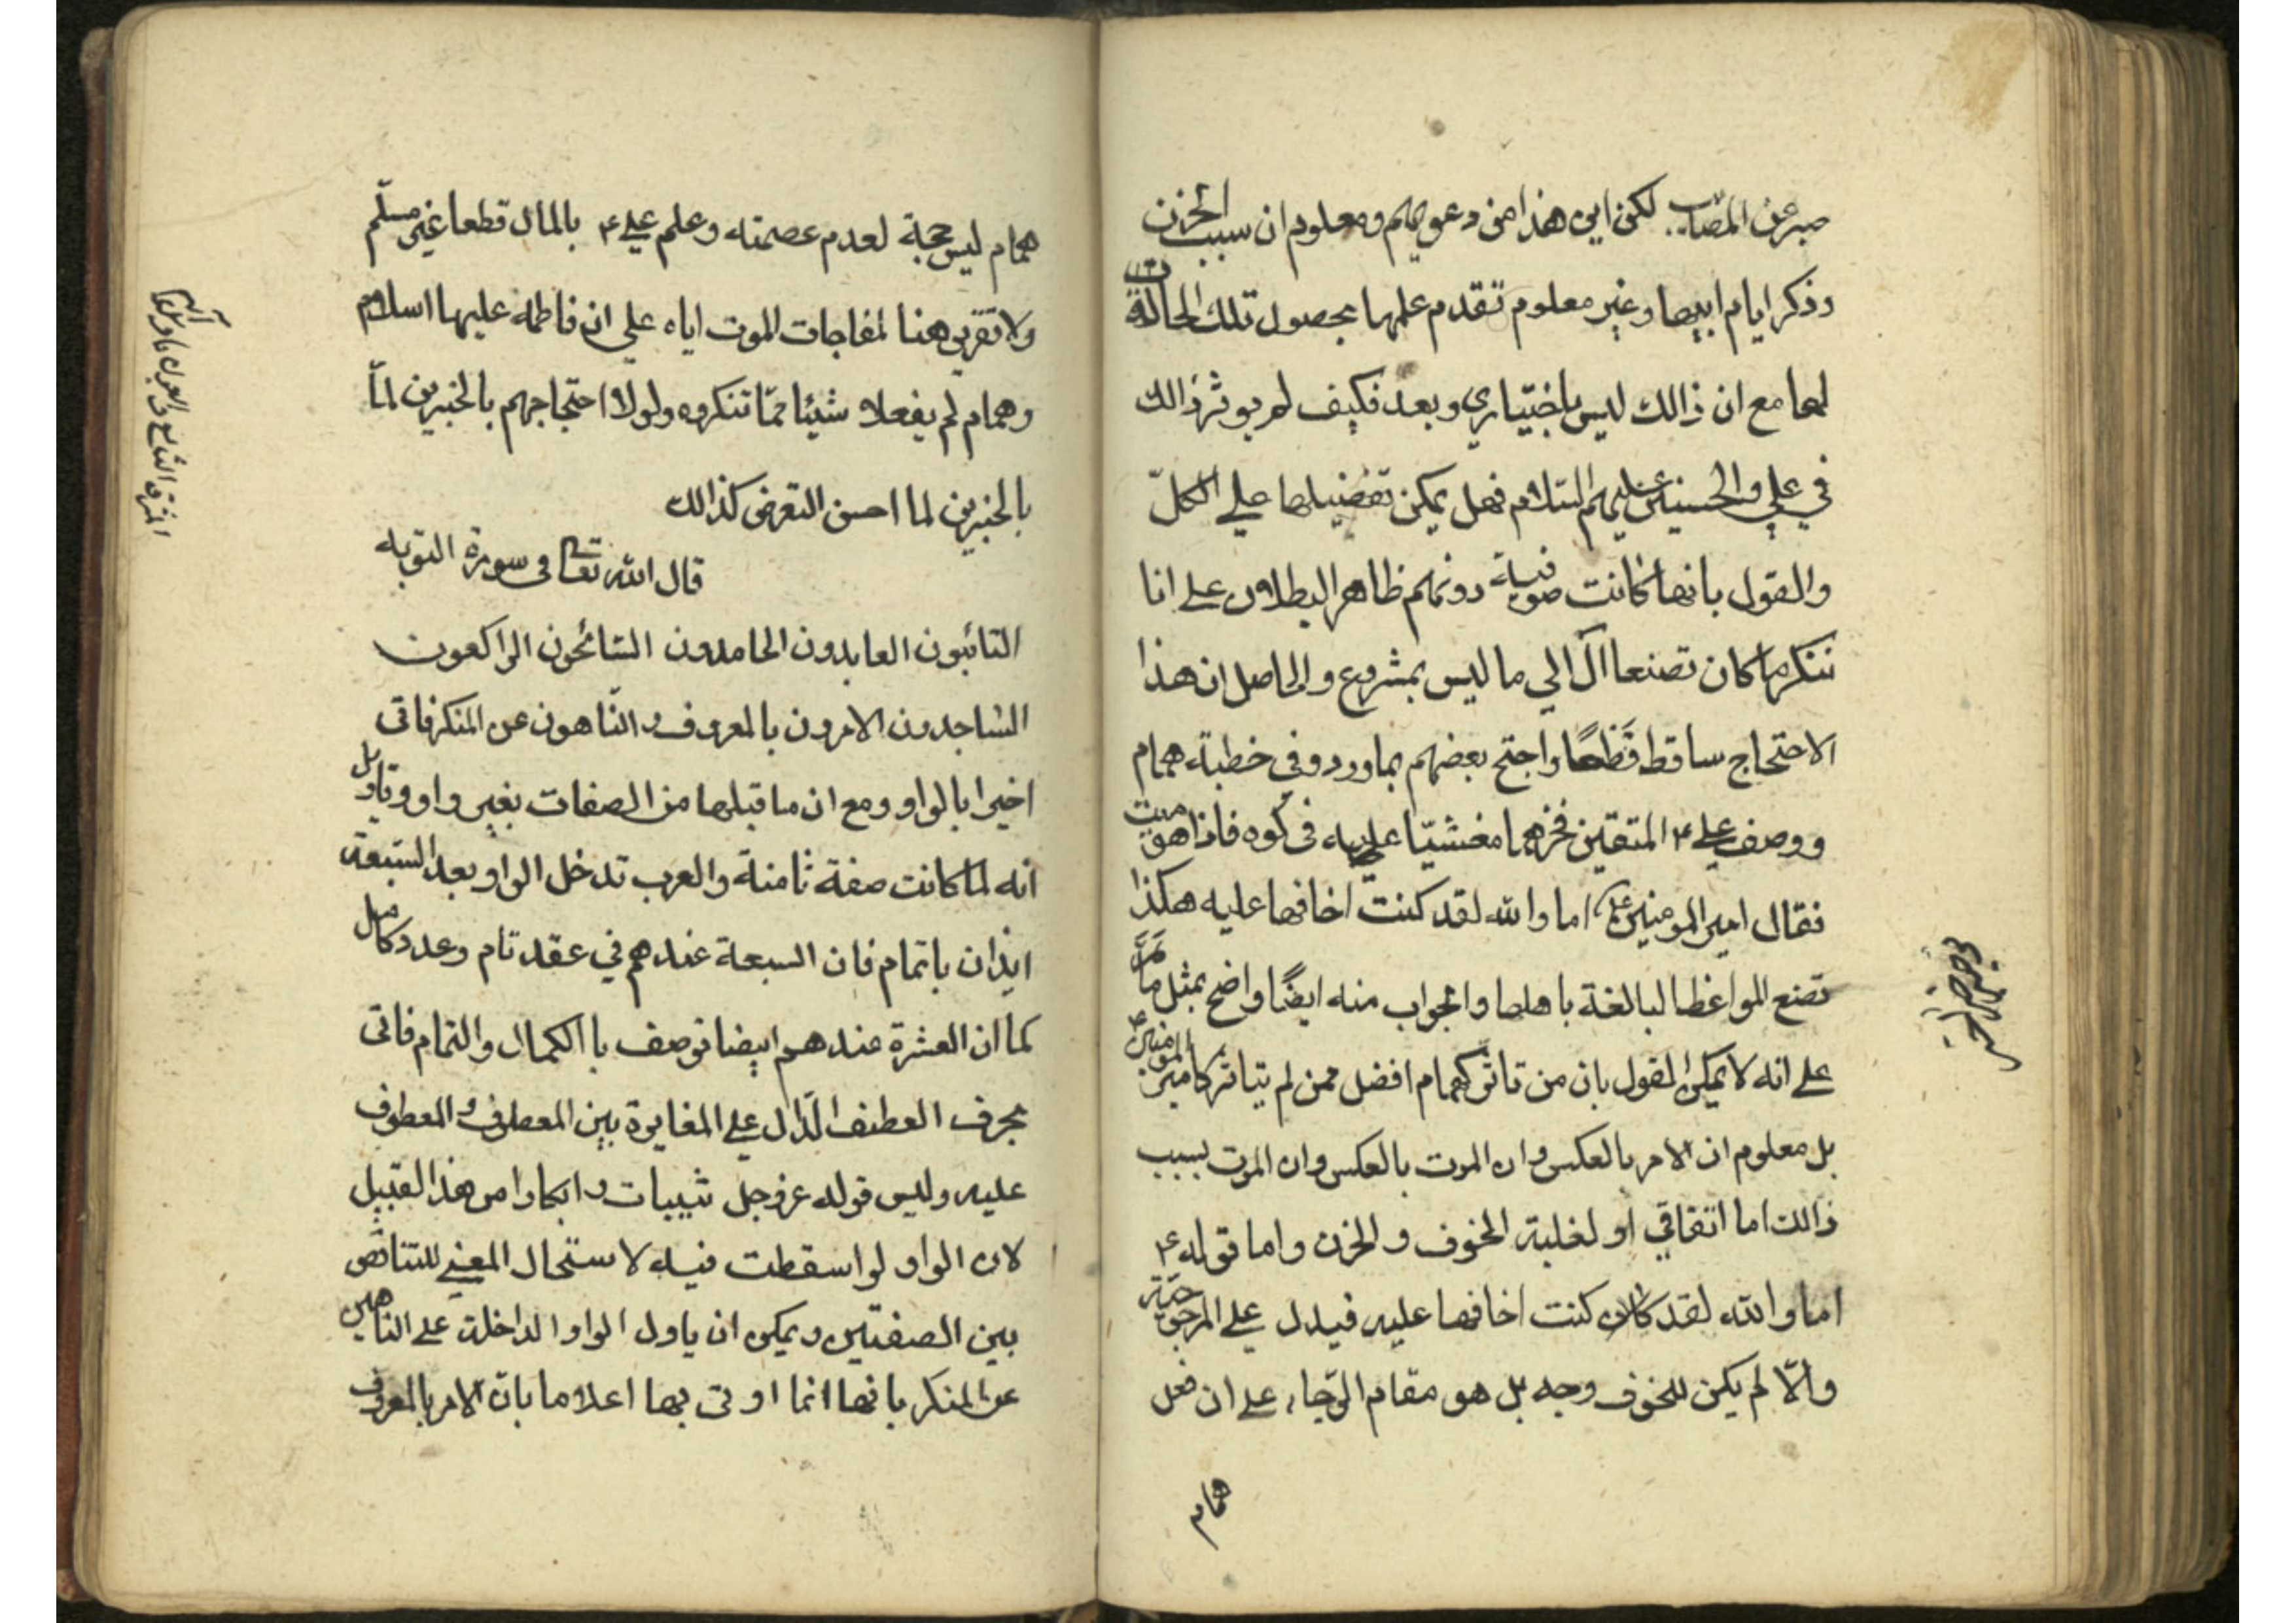 صبر عن المصاب لكن اين هذا من دعويهم ومعلوم ان سبب الحزن
وذكر ايام ابيها وغير معلوم تقدم علمها بحصول تلك الحالة
لها مع ان ذالك ليس باختياري وبعد فكيف لم يوثر ذالك
في علي والحسنين عليهم السلام فهل يمكن تفضيلها علي الكلّ
والقول بانها كانت صوفية دونهم ظاهر البطلان علي انا
ننكر ما كان تصنعا آل الي ما ليس بمشروع والحاصل ان هذا
الاحتجاج ساقط قطعا واحتج بعضهم بما ورد في خطبة همام
ووصف علي ۴ المتقين فخر همام مغشيّا عليه في كوه فاذا هو ميت
فقال امير المومنين ع اما والله لقد كنت اخافها عليه هكذا
تصنع المواعظ البالغة باهلها والجواب منه ايضًا واضح بمثل ما مَرَّ
علي انه لا يمكن القول بان من تاثر كهمام افضل ممن لم يتاثر كامير المومنين ۴
بل معلوم ان الامر بالعكس وان الموت بالعكس وان الموت بسبب
ذالك اما اتفاقي او لغلبة الخوف والحزن واما قوله ۴
اما والله لقد كنت اخافها عليه فيدل علي المرجوحيّة
والّا لم يكن للخوف وجه بل هو مقام الرّجاء علي ان فعل
همام
همام ليس حجة لعدم عصمته وعلم علي ۴ بالمال قطعا غير مسلّم
ولا تقريب هنا لمفاجات الموت اياه علي ان فاطمه عليها اسلام
وهمام لم يفعلا شيئا ممّا تنكروه ولولا احتجاجهم بالخبرين لمّا
بالخبرين لما احسن التعرض كذالك
قال الله تعالى فى سورة التوبه
التائبون العابدون الحامدون السّائحون الراكعون
السّاجدون الامرون بالمعروف والنّاهون عن المنكر فاتى
اخيرا بالواو ومع ان ما قبلها من الصفات بغير واو وتاويل
انه لما كانت صفة ثامنة والعرب تدخل الواو بعد السّبعة
ايذان باتمام فان السبعة عندهم في عقد تام وعدد كامل
كما ان العشرة عندهم ايضا توصف با الكمال والتمام فاتى
بحرف العطف الدّال علي المغايرة بين المعطوف والمعطوف
عليه وليس قوله عز وجل ثيبات وابكارا من هذا القبيل
لان الواو لو اسقطت فيه لاستحال المعني للتناقض
بين الصفتين ويمكن ان ياول الواو الداخلة علي الناهين
عن المنكر بانها انما اوتى بها اعلاما بانّ الامر بالمعروف